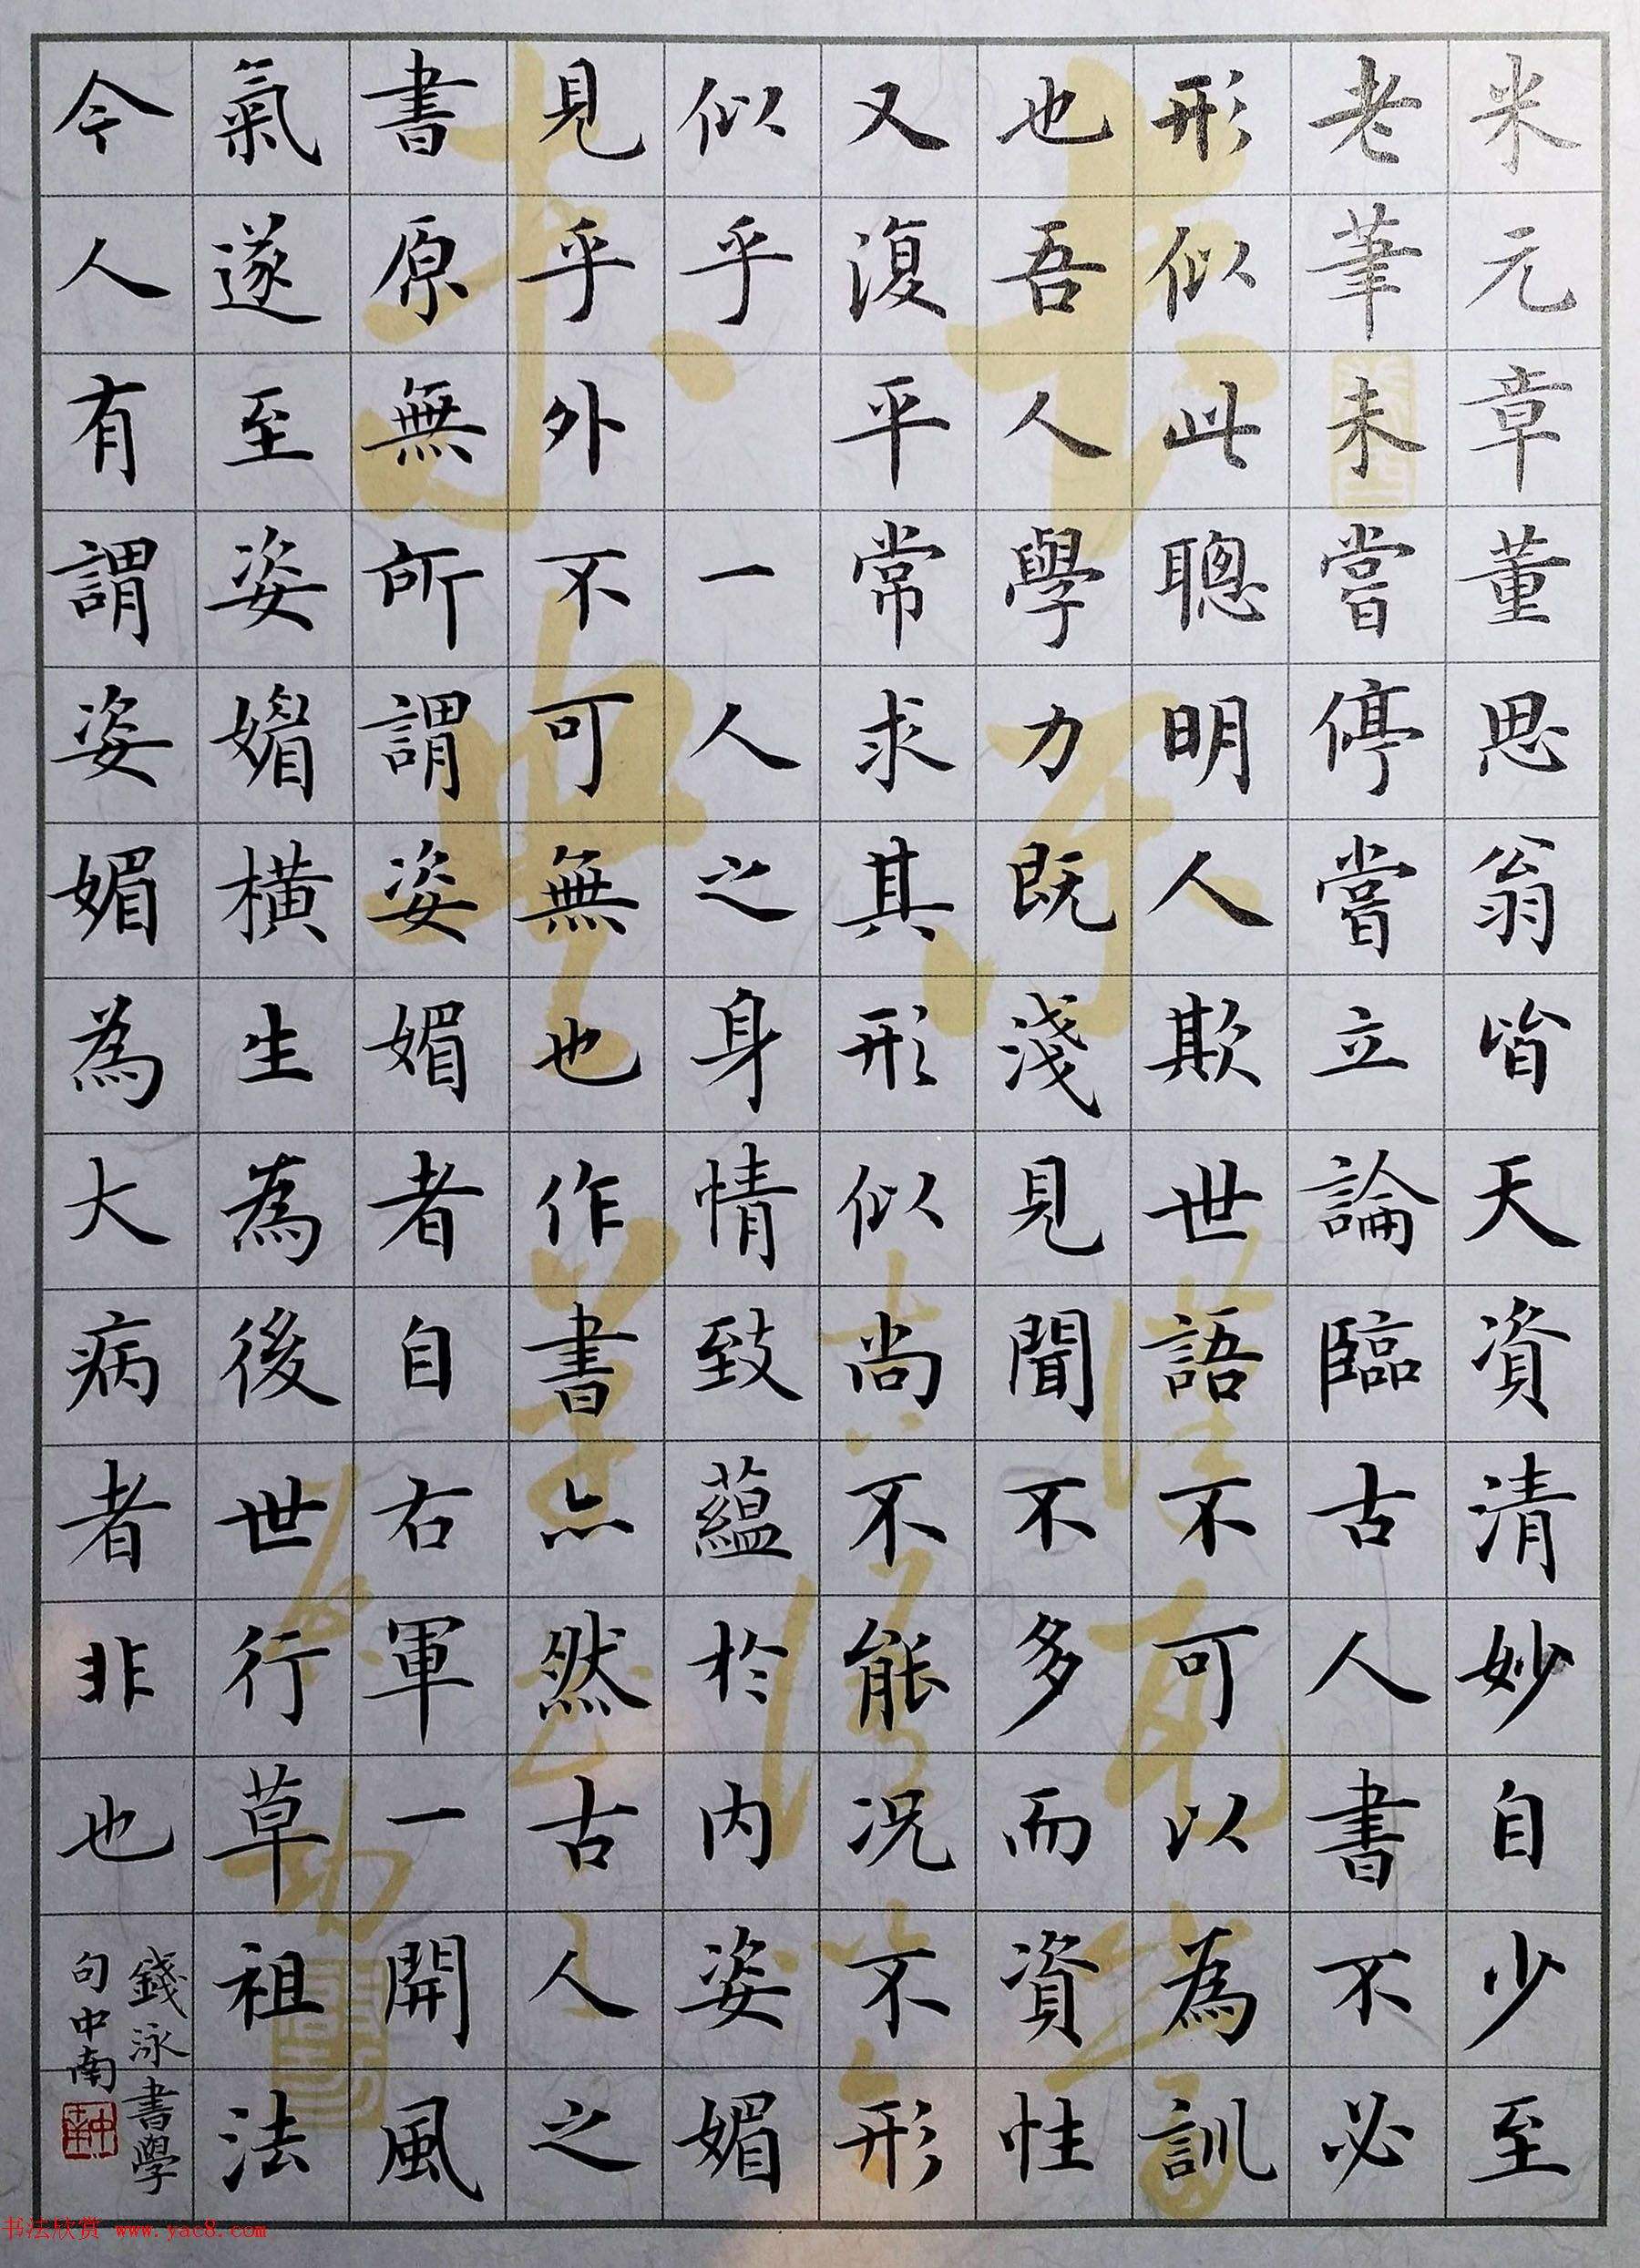 米元章董思翁皆天資清妙自少至
老筆未嘗停嘗立論臨古人書不必
形似此聰明人欺世語不可以為訓
也吾人學力既淺見聞不多而資性
又復平常求其形似尚不能況不形
似乎 一人之身情致蘊於內姿媚
見乎外不可無也作書亦然古人之
書原無所謂姿媚者自右軍一開風
氣遂至姿媚橫生為後世行草祖法
今人有謂姿媚為大病者非也
錢泳書學
句中南
书法欣赏 www.yac8.com